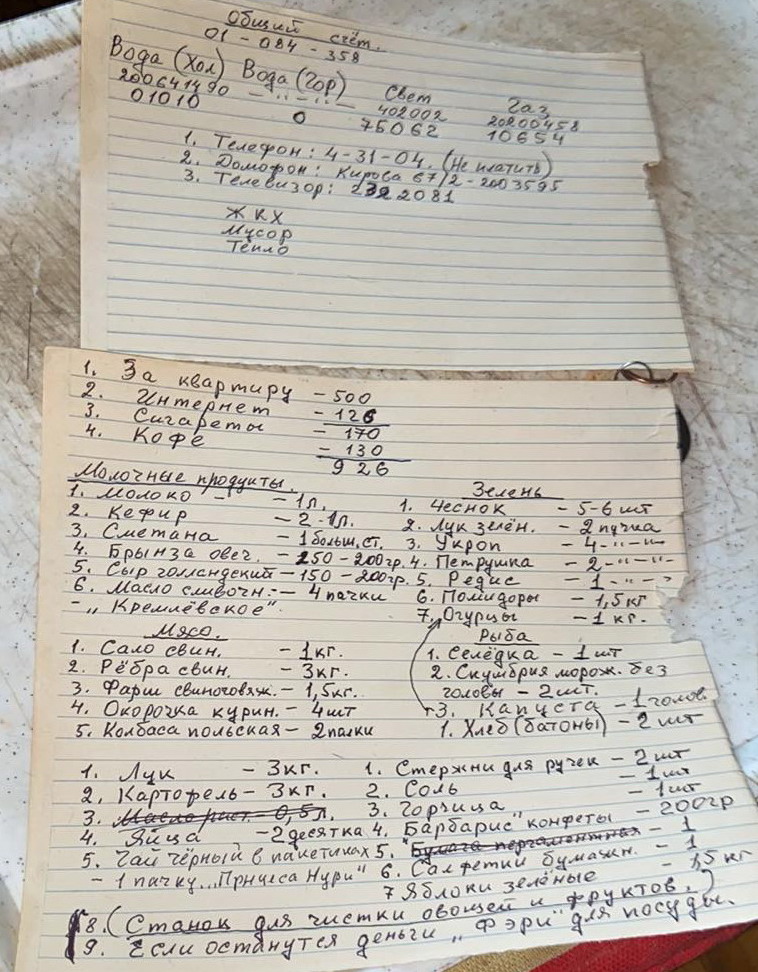 Общий счёт.
01 - 084 - 358
Вода (Хол) Вода (Гор) Свет Газ
200641490 - " - " - 402002 20200458
01010 0 75062 10654
1. Телефон: 4-31-04. (Не платить)
2. Домофон: Кирова 67/2 - 2003595
3. Телевизор: 2322081
ЖКХ
Мусор
Тепло
1. За квартиру - 500
2. Интернет - 126
3. Сигареты - 170
4. Кофе - 130
926
Молочные продукты.
1. Молоко - - 1л.
2. Кефир - 2-1л.
3. Сметана - 1больш.ст.
4. Брынза овеч. - 250-200гр.
5. Сыр голландский - 150-200гр.
6. Масло сливочн. - 4 пачки
- „Кремлёвское".
Зелень
1. Чеснок - 5-6 шт
2. Лук зелён. - 2 пучка
3. Укроп - 4 - " - " -
4. Петрушка - 2 - " - " -
5. Редис - 1 - " - "
6. Помидоры - 1,5 кг
7. Огурцы - 1 кг.
Мясо.
1. Сало свин. - 1кг.
2. Рёбра свин. - 3кг.
3. Фарш свиноговяж. - 1,5кг.
4. Окорочка курин. - 4шт
5. Колбаса польская - 2палки
Рыба
1. Селёдка - 1 шт
2. Скумбрия морож. без
головы - 2шт.
3. Капуста - 1голов.
1. Хлеб (батоны) - 2 шт
1. Лук - 3кг.
2. Картофель - 3кг.
3. Масло раст. - 0,5л.
4. Яйца - 2десятка
5. Чай чёрный в пакетиках
- 1 пачку „Принцеса Нури"
1. Стержни для ручек - 2 шт
2. Соль - 1шт
3. Горчица - 1шт
4. „Барбарис" конфеты - 200гр
5. Бумага пергаментная - 1
6. Салфетки бумажн. - 1
7 Яблоки зелёные - 1,5 кг
8. (Станок для чистки овощей и фруктов.)
9. Если останутся деньги „Фэри" для посуды.